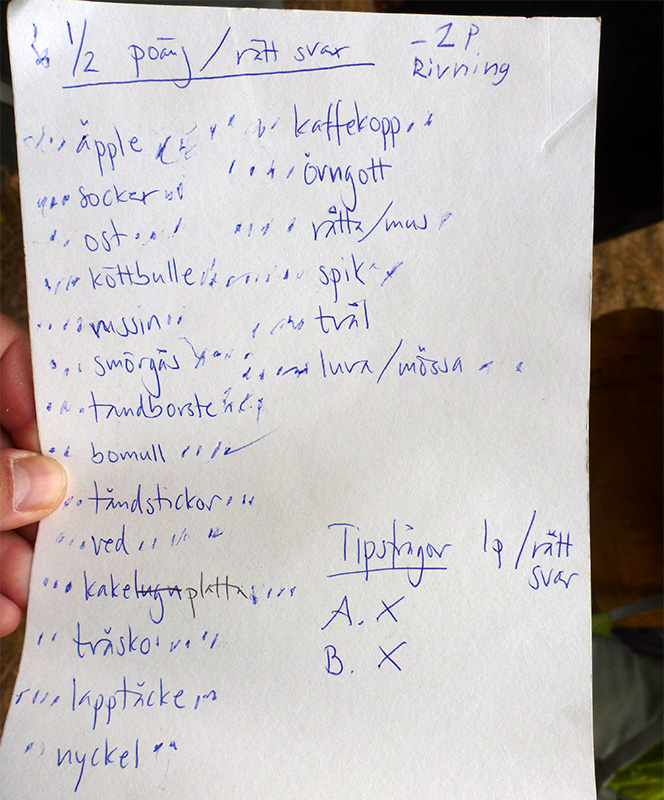 1/2 poäng / rätt svar
-2 p.
Rivning
äpple
socker
ost
köttbulle
russin
smörgås
tandborste
bomull
tändstickor
ved
kakelugnplatta
träsko
lapptäcke
nyckel
kaffekopp
örngott
råtta/mus
spik
tvål
luva/mössa
Tipsfrågor 1p/rätt
svar
A. X
B. X